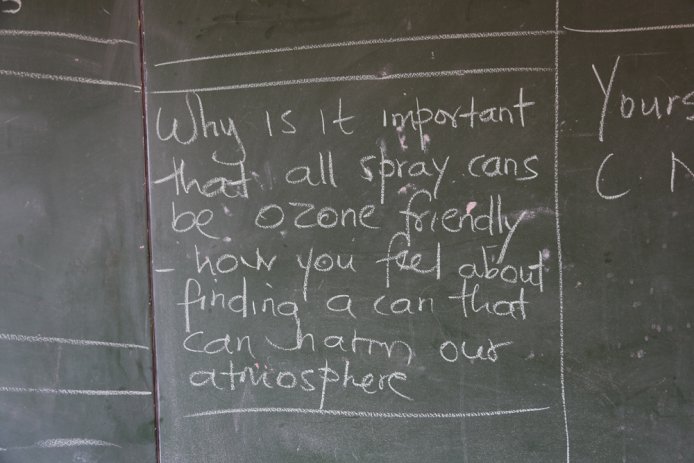 Why is it important
that all spray cans
be ozone friendly
- how you feel about
finding a can that
can harm our
atmosphere
Yours
C